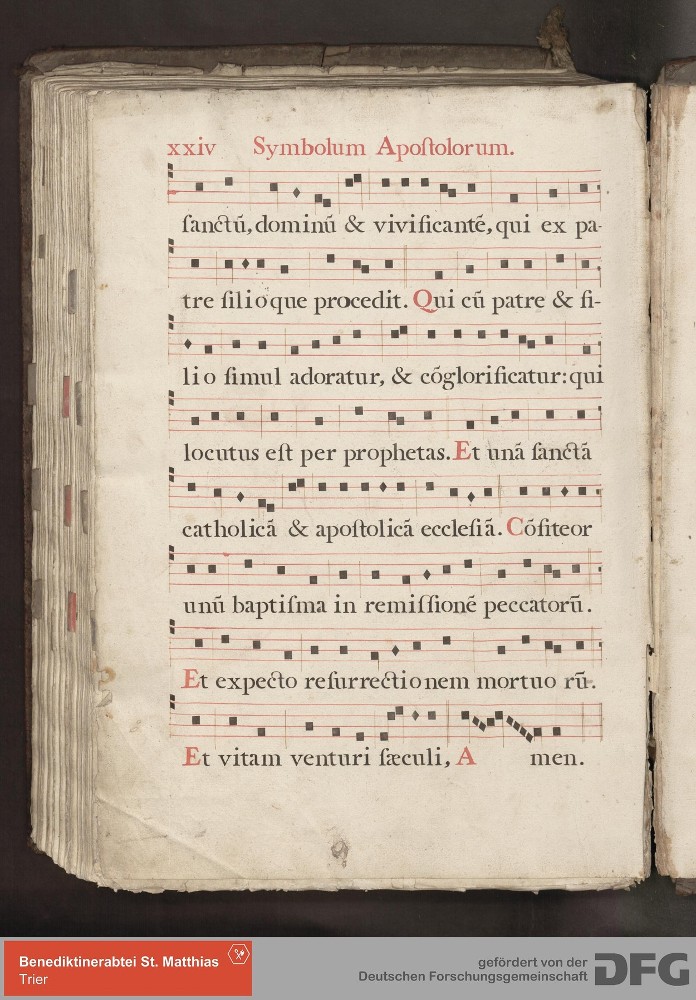 xxiv Symbolum Apoſtolorum.
ſanctū, dominū & vivificantē, qui ex pa-
tre filioque procedit. Qui cū patre & fi-
lio ſimul adoratur, & cōglorificatur: qui
locutus eſt per prophetas. Et unā ſanctā
catholicā & apoſtolicā eccleſiā. Cōfiteor
unū baptiſma in remiſſionē peccatorū.
Et expecto reſurrectionem mortuo rū.
Et vitam venturi ſæculi, A men.
Benediktinerabtei St. Matthias
Trier
gefördert von der
Deutschen Forschungsgemeinschaft
DFG